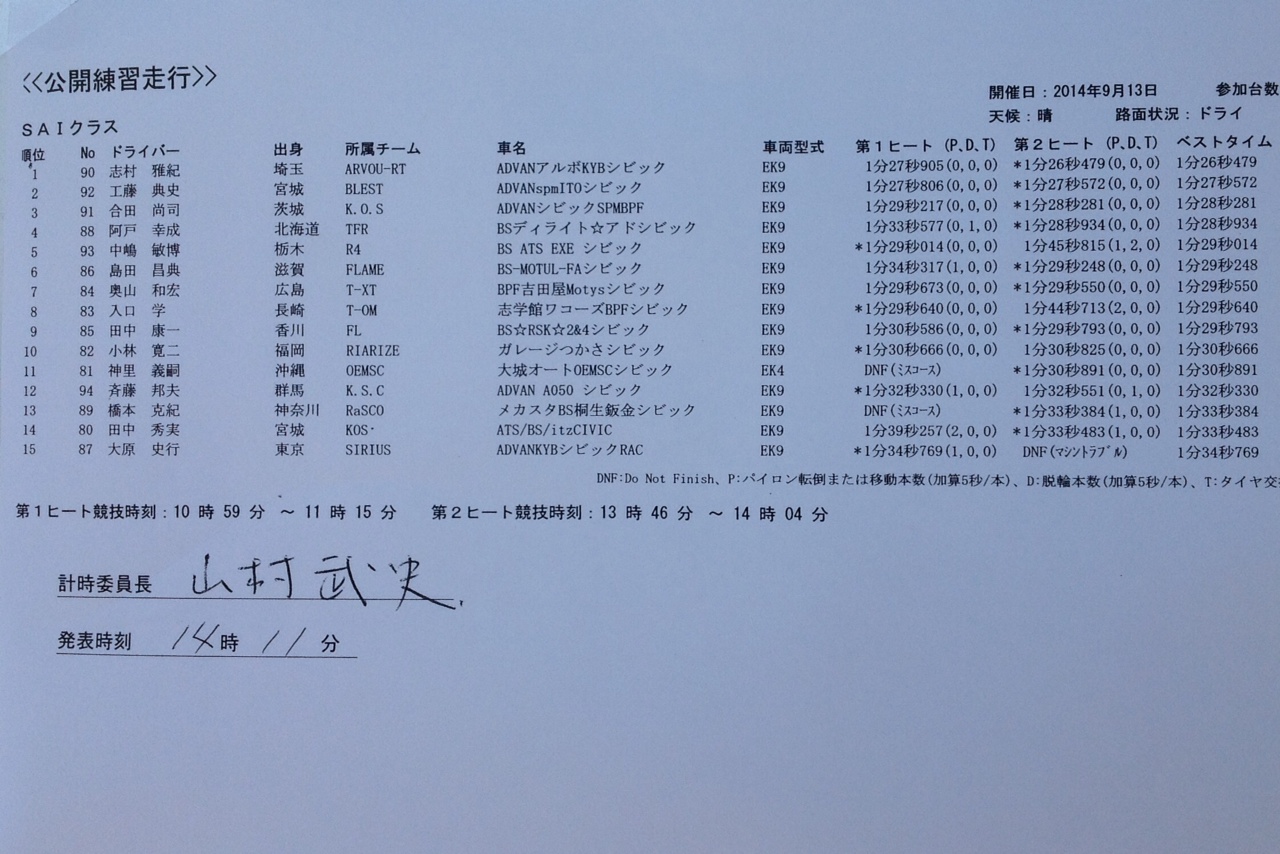 <<公開練習走行>>
開催日：2014年9月13日 参加台数
天候：晴 路面状況：ドライ
ＳＡＩクラス
順位 No ドライバー 出身 所属チーム 車名 車両型式 第１ヒート (P,D,T) 第２ヒート (P,D,T) ベストタイム
1 90 志村 雅紀 埼玉 ARVOU-RT ADVANアルボKYBシビック EK9 1分27秒905(0,0,0) *1分26秒479(0,0,0) 1分26秒479
2 92 工藤 典史 宮城 BLEST ADVANspmITOシビック EK9 1分27秒806(0,0,0) *1分27秒572(0,0,0) 1分27秒572
3 91 合田 尚司 茨城 K.O.S ADVANシビックSPMBPF EK9 1分29秒217(0,0,0) *1分28秒281(0,0,0) 1分28秒281
4 88 阿戸 幸成 北海道 TFR BSディライト☆アドシビック EK9 1分33秒577(0,1,0) *1分28秒934(0,0,0) 1分28秒934
5 93 中嶋 敏博 栃木 R4 BS ATS EXE シビック EK9 *1分29秒014(0,0,0) 1分45秒815(1,2,0) 1分29秒014
6 86 島田 昌典 滋賀 FLAME BS-MOTUL-FAシビック EK9 1分34秒317(1,0,0) *1分29秒248(0,0,0) 1分29秒248
7 84 奥山 和宏 広島 T-XT BPF吉田屋Motysシビック EK9 1分29秒673(0,0,0) *1分29秒550(0,0,0) 1分29秒550
8 83 入口 学 長崎 T-OM 志学館ワコーズBPFシビック EK9 *1分29秒640(0,0,0) 1分44秒713(2,0,0) 1分29秒640
9 85 田中 康一 香川 FL BS☆RSK☆2&4シビック EK9 1分30秒586(0,0,0) *1分29秒793(0,0,0) 1分29秒793
10 82 小林 寛二 福岡 RIARIZE ガレージつかさシビック EK9 *1分30秒666(0,0,0) 1分30秒825(0,0,0) 1分30秒666
11 81 神里 義嗣 沖縄 OEMSC 大城オートOEMSCシビック EK4 DNF(ﾐｽｺｰｽ) *1分30秒891(0,0,0) 1分30秒891
12 94 斉藤 邦夫 群馬 K.S.C ADVAN A050 シビック EK9 *1分32秒330(1,0,0) 1分32秒551(0,1,0) 1分32秒330
13 89 橋本 克紀 神奈川 RaSCO メカスタBS桐生鈑金シビック EK9 DNF(ﾐｽｺｰｽ) *1分33秒384(1,0,0) 1分33秒384
14 80 田中 秀実 宮城 KOS ATS/BS/itzCIVIC EK9 1分39秒257(2,0,0) *1分33秒483(1,0,0) 1分33秒483
15 87 大原 史行 東京 SIRIUS ADVANKYBシビックRAC EK9 *1分34秒769(1,0,0) DNF(ﾏｼﾝﾄﾗﾌﾞﾙ) 1分34秒769
DNF:Do Not Finish、P:パイロン転倒または移動本数(加算5秒/本)、D:脱輪本数(加算5秒/本)、T:タイヤ交
第１ヒート競技時刻：10 時 59 分 ～ 11 時 15 分 第２ヒート競技時刻：13 時 46 分 ～ 14 時 04 分
計時委員長 山村 武史
発表時刻 14 時 11 分